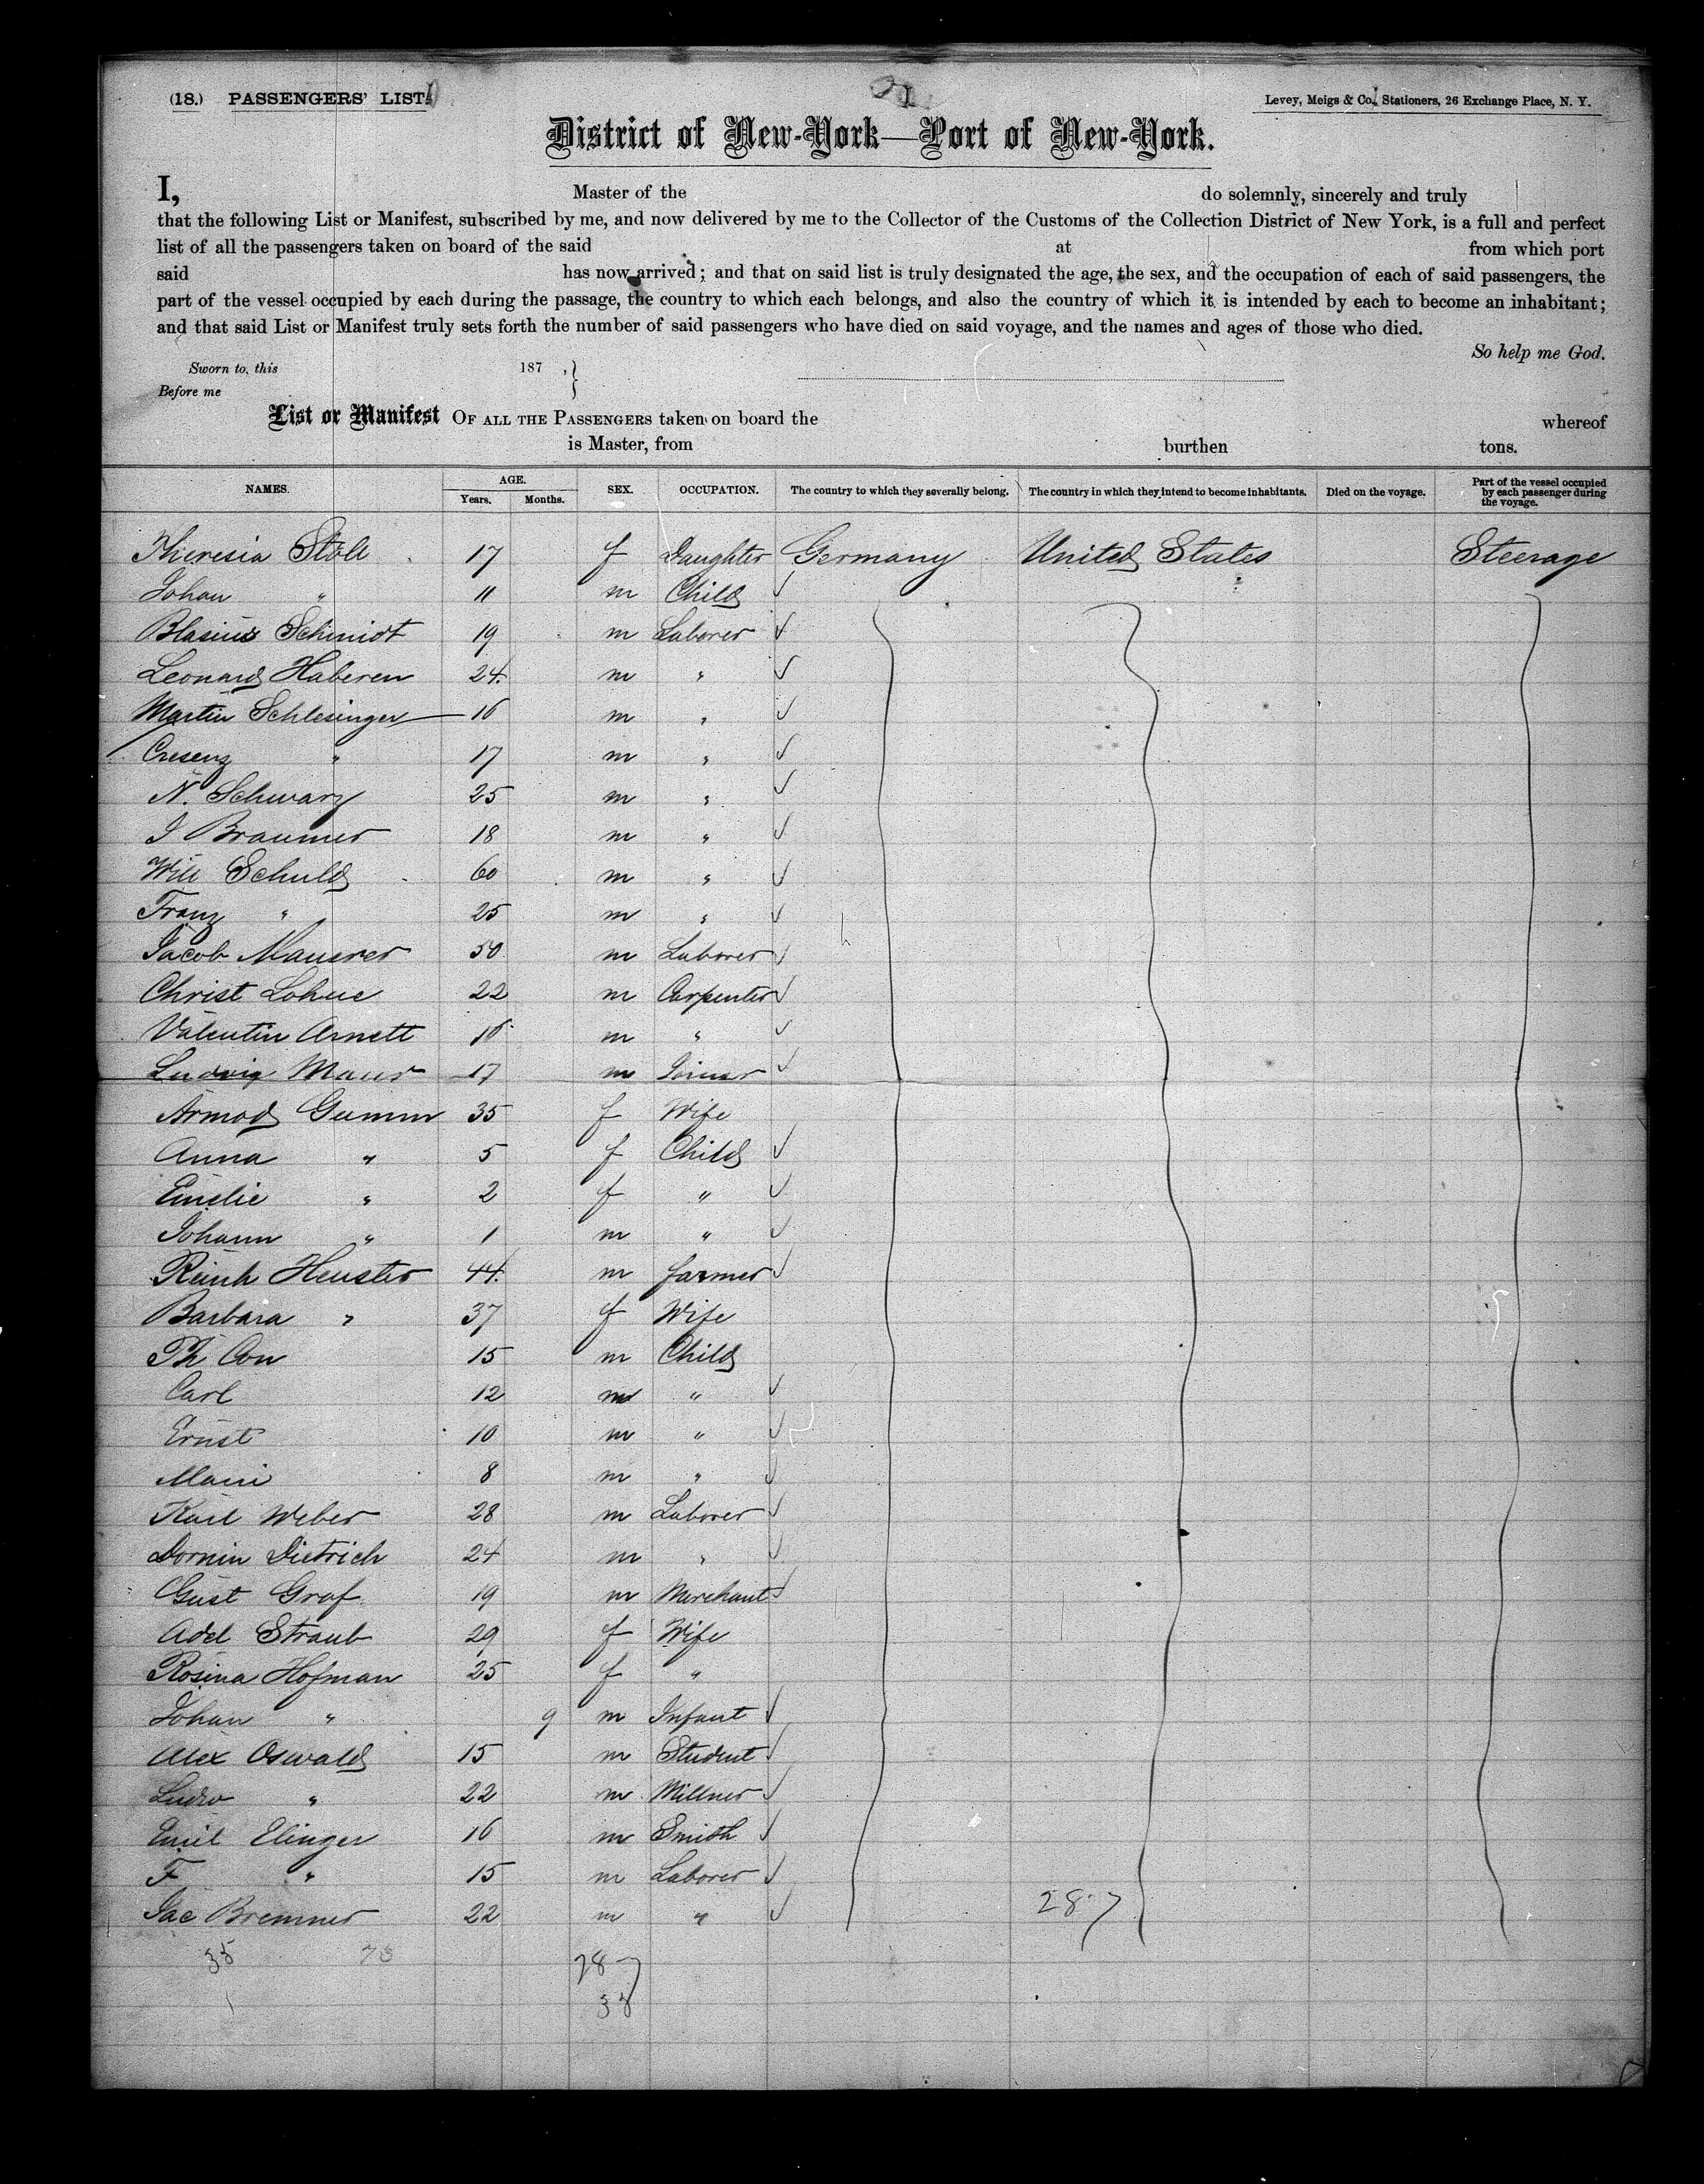 (18.) PASSENGERS' LIST. Levey, Meigs & Co., Stationers, 26 Exchange Place, N. Y.
District of New-York—Port of New-York.
I, Master of the do solemnly, sincerely and truly
that the following List or Manifest, subscribed by me, and now delivered by me to the Collector of the Customs of the Collection District of New York, is a full and perfect
list of all the passengers taken on board of the said at from which port
said has now arrived; and that on said list is truly designated the age, the sex, and the occupation of each of said passengers, the
part of the vessel occupied by each during the passage, the country to which each belongs, and also the country of which it is intended by each to become an inhabitant;
and that said List or Manifest truly sets forth the number of said passengers who have died on said voyage, and the names and ages of those who died.
So help me God.
Sworn to, this 187 ,}
Before me
List or Manifest OF ALL THE PASSENGERS taken on board the whereof
is Master, from burthen tons.
NAMES. AGE. Years. Months. SEX. OCCUPATION. The country to which they severally belong. The country in which they intend to become inhabitants. Died on the voyage. Part of the vessel occupied by each passenger during the voyage.
Theresia Stoll 17 f Daughter Germany United States Steerage
Johan " 11 m Child
Blasius Schmidt 19 m Laborer
Leonard Haberen 24 m "
Martin Schlesinger 16 m "
Cresenz " 17 m "
N. Schwarz 25 m "
J Braumer 18 m "
Will Schuld 60 m "
Franz " 25 m "
Jacob Maurer 50 m Laborer
Christ Lohue 22 m Carpenter
Valentin Arnett 16 m "
Ludwig Maur 17 m Joiner
Armod Gumm 35 f Wife
Anna " 5 f Child
Emelie " 2 f "
Johann " 1 m "
Reinh Heuster 44 m farmer
Barbara " 37 f Wife
Ph Con 15 m Child
Carl 12 m "
Ernst 10 m "
8 m "
Karl Weber 28 m Laborer
Dornin Dietrich 24 m "
Gust Graf 19 m Merchant
Adel Straub 29 f Wife
Rosina Hofman 25 f "
Johan " 9 m Infant
Alex Oswald 15 m Student
Ludw " 22 m Millner
Emil Elinger 16 m Smith
F " 15 m Laborer
Jac Bremner 22 m " 287
35 287